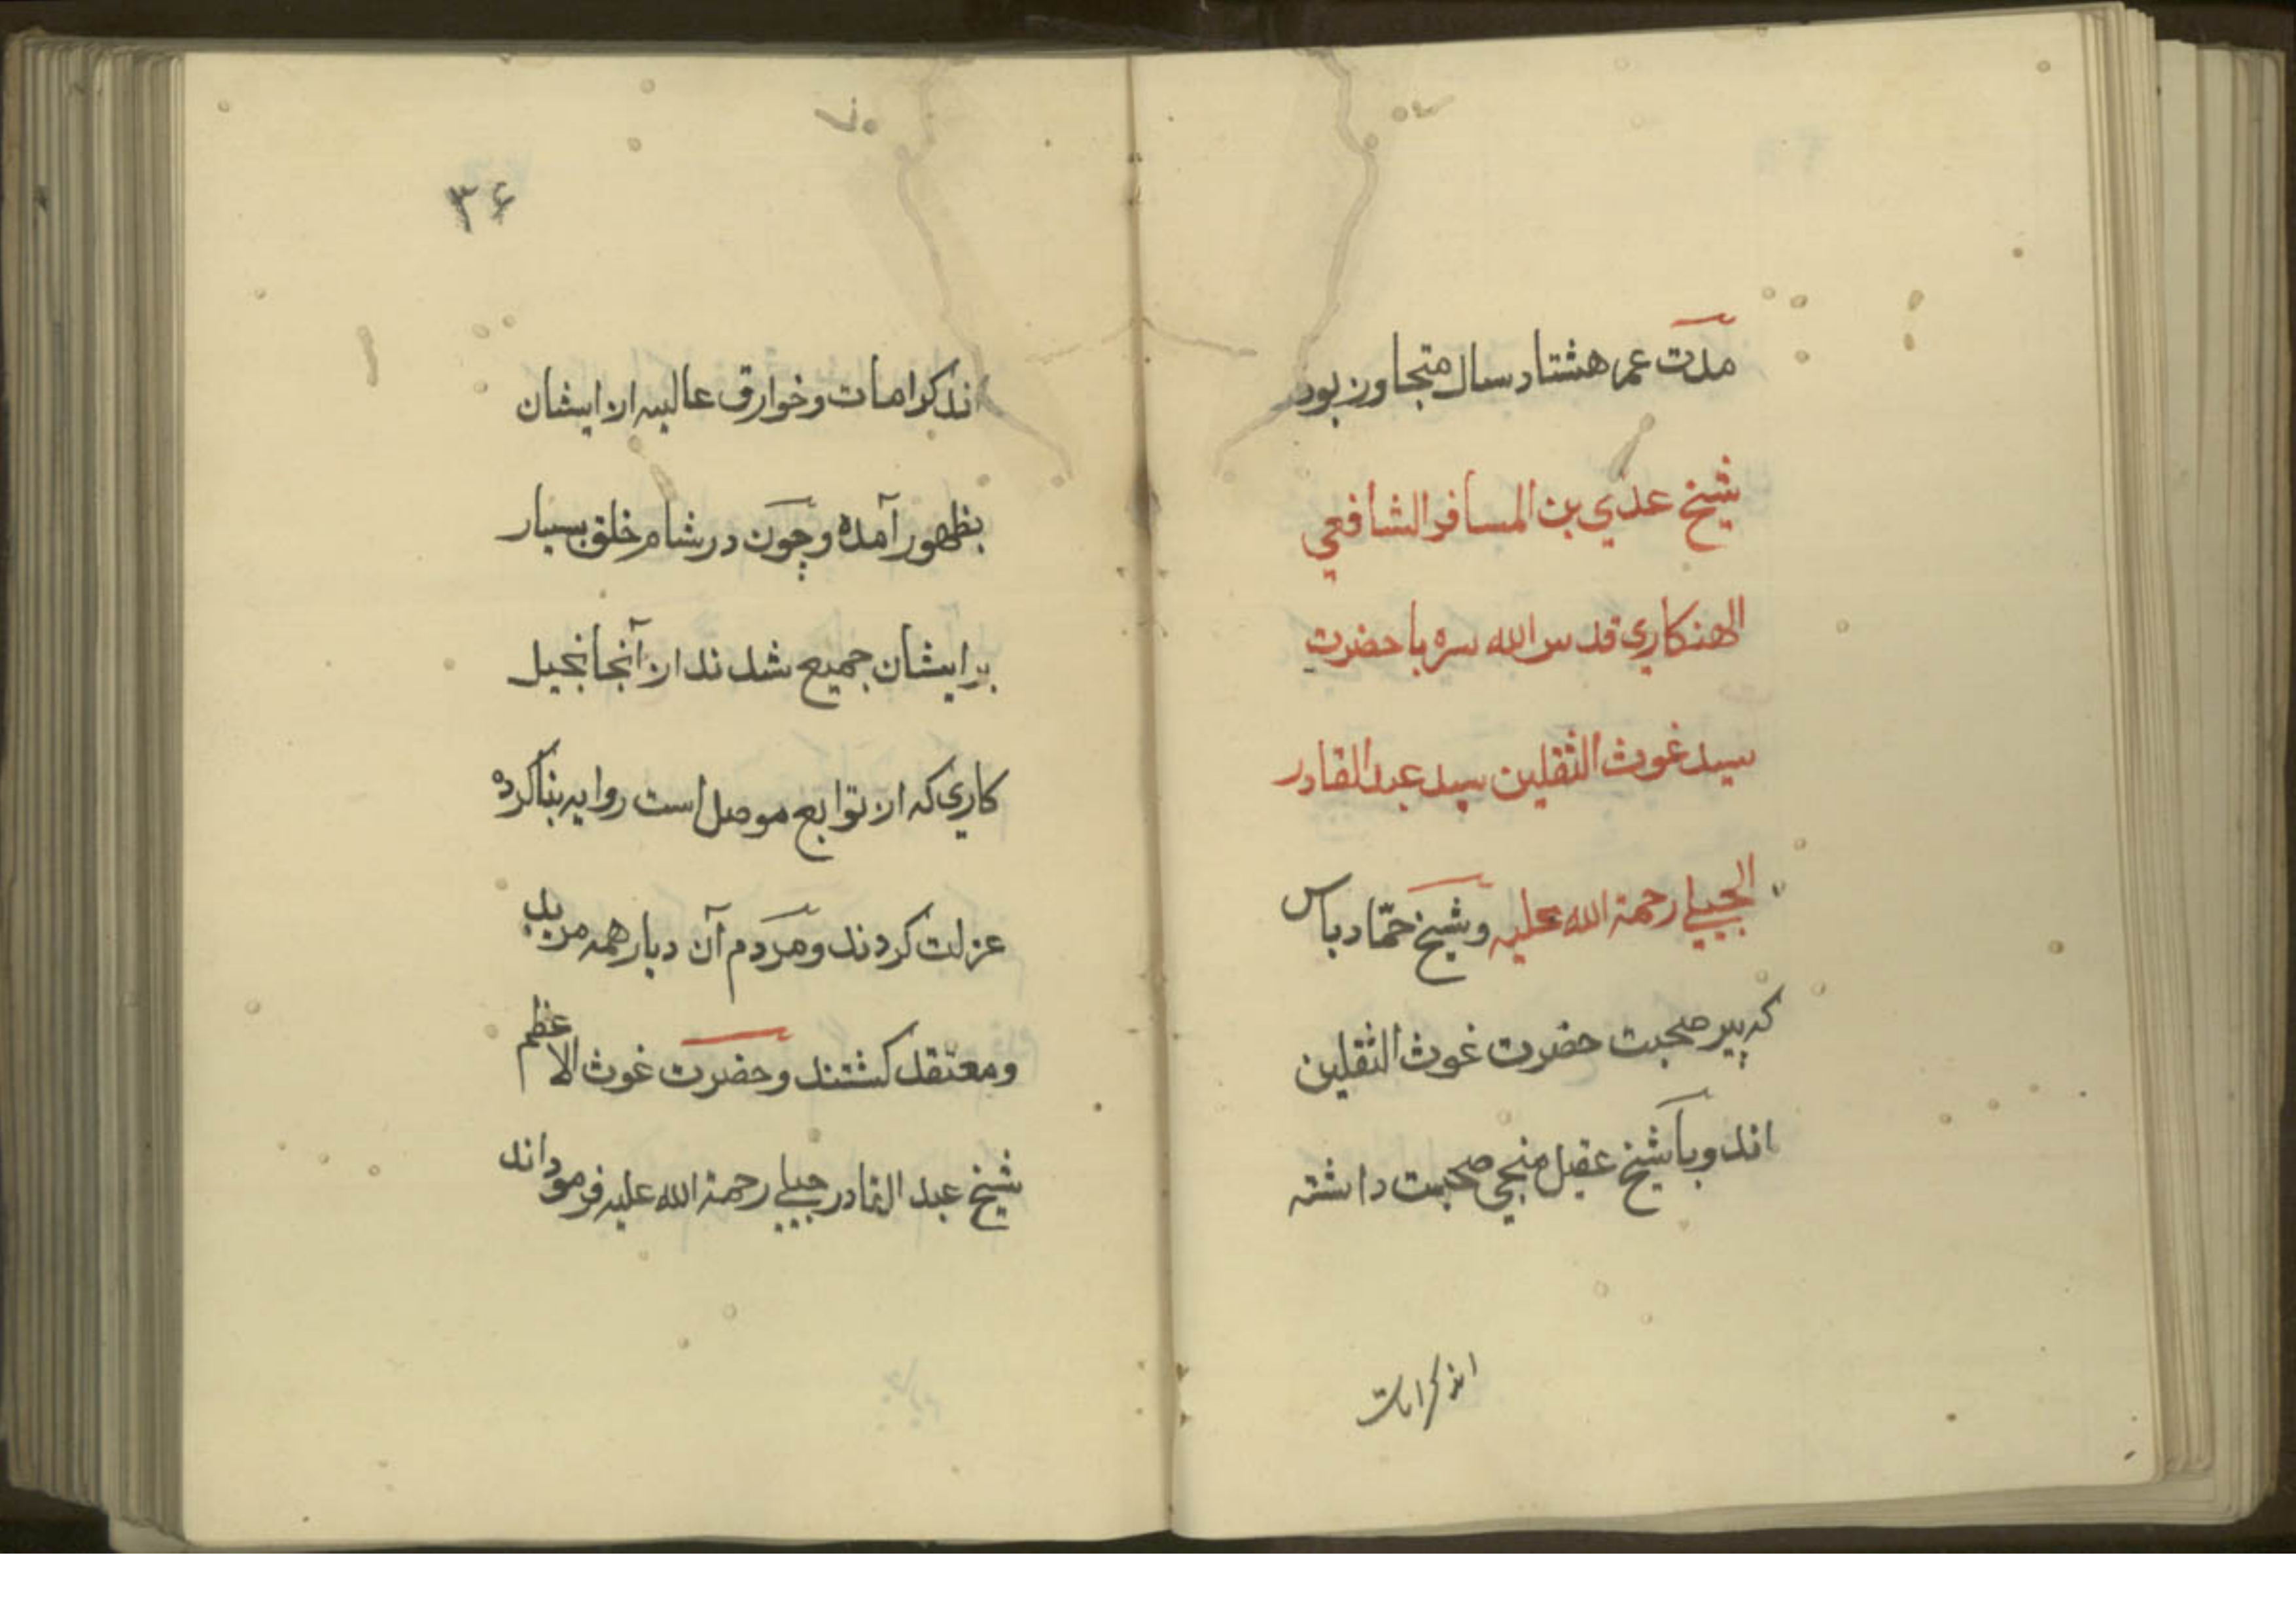 مدت عمر هشتاد سال متجاوز بود
شيخ عدي بن المسافر الشافعي
الهنكاري قدس الله سره با حضرت
سيد غوث الثقلين سيد عبدالقادر
الجيلي رحمة الله عليه وشيخ حمّاد دباس
كه پير صحبت حضرت غوث الثقلين
اند وبا شيخ عقيل منجي صحبت داشته
اند كرامات
۳۶
اند كرامات وخوارق عاليه از ايشان
بظهور آمده وچون در شام خلق بسيار
بر ايشان جميع شدند از آنجا بحيل
كاري كه از توابع موصل است روايه بنا كرده
عزلت كردند ومردم آن ديار همه مريد
ومعتقد كشتند وحضرت غوث الاعظم
شيخ عبد القادر جيلي رحمة الله عليه فرموداند